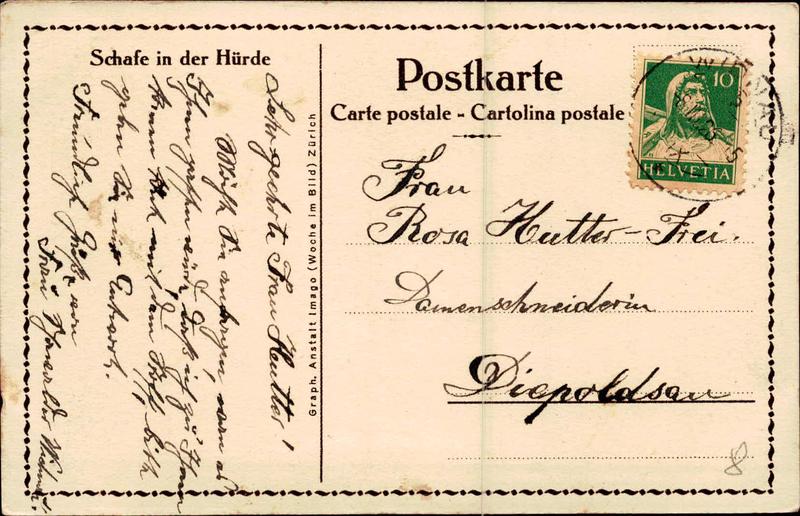 Schafe in der Hürde
Postkarte
Carte postale - Cartolina postale
10
HELVETIA
Graph. Anstalt Imago (Woche im Bild) Zürich
Frau
Rosa Hutter-Frei.
Damenschneiderin
Diepoldsau
Sehr geehrte Frau Hutter!
Möchte Sie anfragen, wann es
Ihnen passen würde, daß ich zu Ihnen
kommen mit dem Stoff bitte
geben Sie mir Antwort.
Freundlich Grüße von
Frau
8